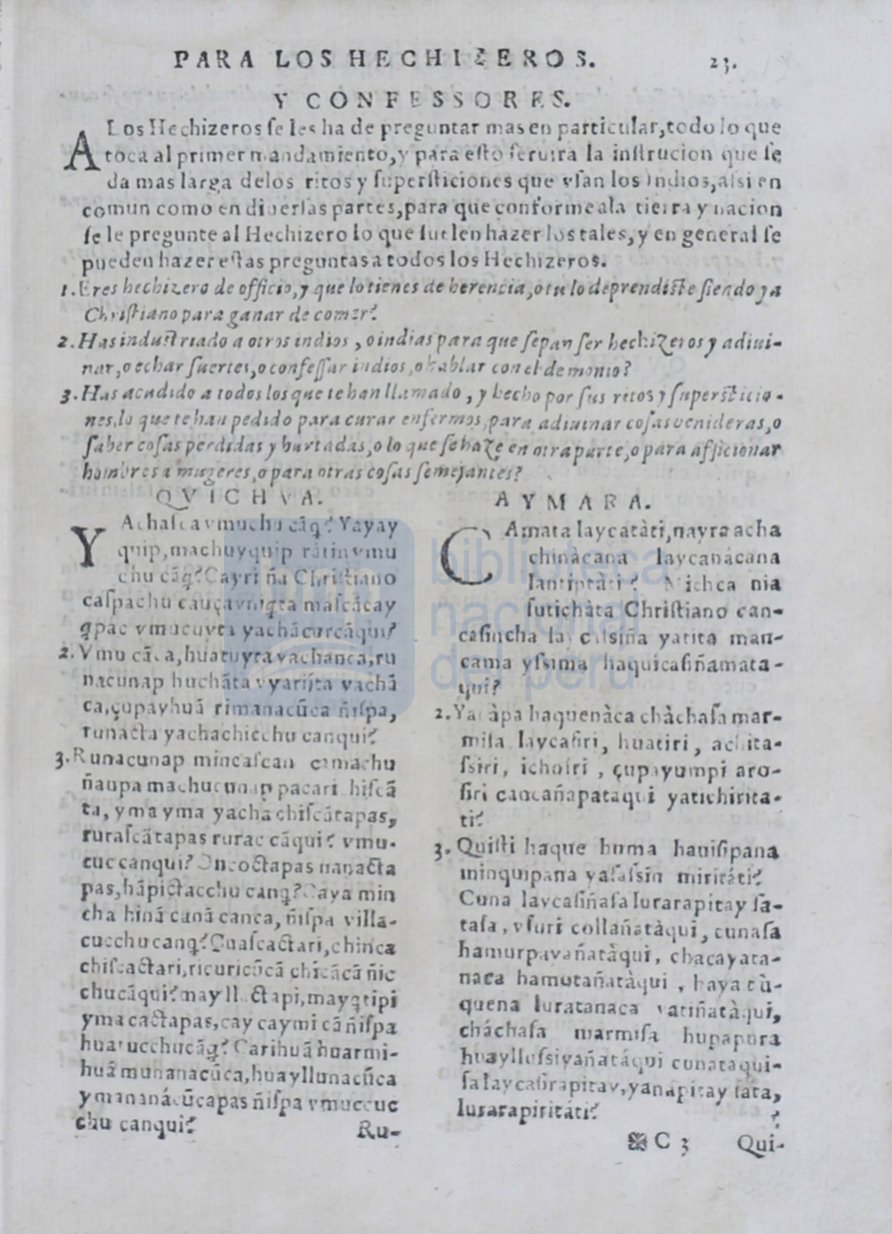 PARA LOS HECHIZEROS. 23.
Y CONFESSORES.
A Los Hechizeros se les ha de preguntar mas en particular,todo lo que
toca al primer mandamiento,y para esto seruira la instrucion que se
da mas larga delos ritos y supersticiones que vsan los Indios,assi en
comun como en diuersas partes,para que conforme ala tierra y nacion
se le pregunte al Hechizero lo que suelen hazer los tales,y en general se
pueden hazer estas preguntas a todos los Hechizeros.
1. Eres hechizero de officio,y que lo tienes de herencia,o tu lo deprendiste siendo ya
Christiano para ganar de comer?
2. Has industriado a otros indios , o indias para que sepan ser hechizeros y adiui-
nar,o echar suertes,o confessar indios,o hablar con el demonio?
3. Has acudido a todos los que te han llamado , y hecho por sus ritos y supersticio-
nes,lo que te han pedido para curar enfermos,para adiuinar cosas venideras,o
saber cosas perdidas y hurtadas,o lo que se haze en otra parte,o para afficionar
hombres a mugeres,o para otras cosas semejantes?
QVICHVA.
YAchasca vmuchu cāq? Yayay
quip,machuyquip rātin vmu
chu cāq?Cayri ña Christiano
caspachu
qpac yachācurcāqui?
2. Vmu
nacunap yachā
ca,çupayhuā rimanacūca ñispa,
runacta yachachicchu canqui?
3. Runacunap mincascan camachu
ñaupa machucunap pacari
ta, yma yma yacha chiscātapas,
rurascātapas rurac cāqui? vmu-
cuc canqui? nanacta
pas,
cha hinā canā canca, ñispa villa-
cucchu canq? chinca
chiscactari, ñic
chucāqui?
yma cactapas,cay caymi cā ñispa
Carihuā huarmi-
huā munanacūca,huayllunacūca
ñispa vmucuc
chu canqui?
Ru-
AYMARA.
CAmata laycatàti,nayra acha
chinàcana laycanácana
lantiptàti? nia
sutichàta Christiano can-
casincha yatita man-
cama yssima haquicasiñamata-
qui?
2. haquenàca chàchasa mar-
misa laycasiri, huatiri ,
ssiri, ichosri , çupayumpi aro-
siri cancañapataqui yatichirita-
ti?
3. Quisti haque huma hausipana
minquipana yasassin miritáti?
Cuna laycasiñasa lurarapitay sa-
tasa , vsuri collañatàqui, cunasa
hamurpayañatàqui, chacayata-
naca hamutañatàqui , haya cù-
quena luratanaca yatiñatàqui,
chàchasa marmisa hupapura
huayllussiyañatáqui cunataqui-
sa laycasirapitav,yanapitay sata,
lurarapiritáti?
C 3 Qui-
biblioteca
nacional
del perú